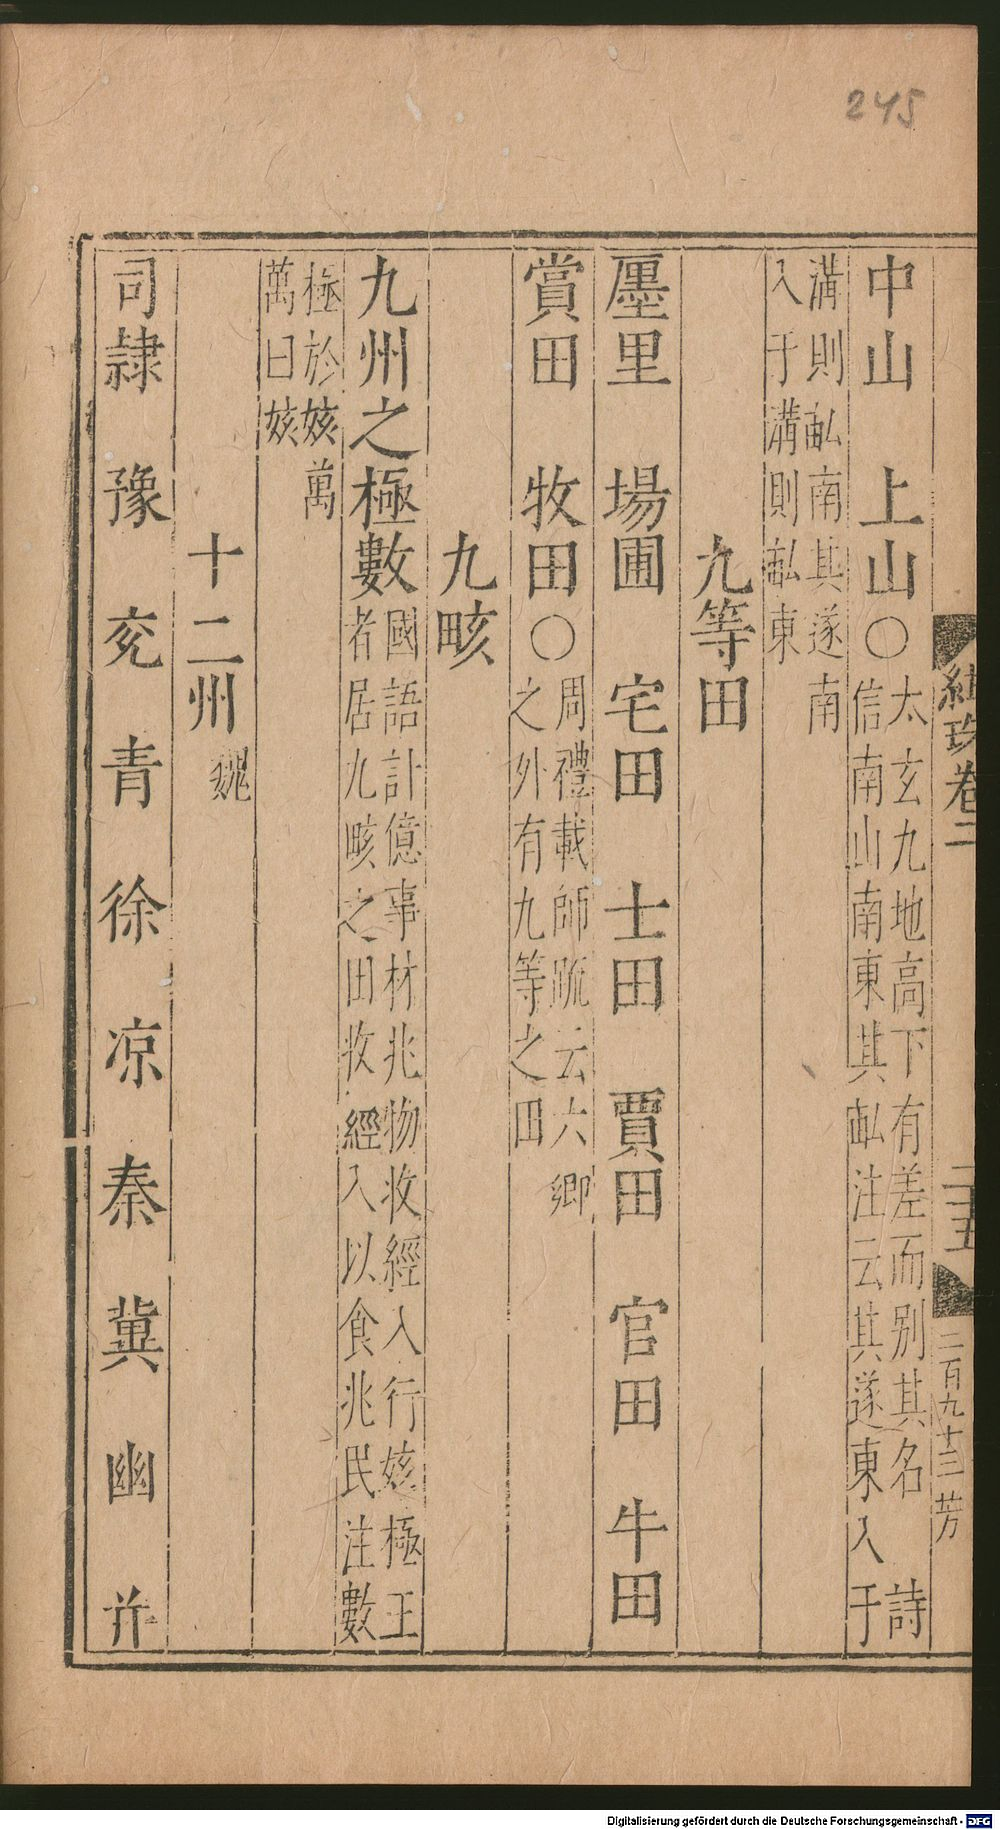 245
緝珠卷二
二十五
二百九十三 芳
中山 上山○太玄九地高下有差而別其名 詩
信南山南東其畝注云其遂東入于
溝則畝南其遂南
入于溝則畝東
九等田
廛里 場圃 宅田 士田 賈田 官田 牛田
賞田 牧田○周禮載師疏云六卿
之外有九等之田
九畡
九州之極數國語計億事材兆物收經入行姟極王
者居九畡之田收經入以食兆民注數
極於姟萬
萬曰姟
十二州魏
司隷 豫 兖 青 徐 凉 秦 冀 幽 并
Digitalisierung gefördert durch die Deutsche Forschungsgemeinschaft - DFG